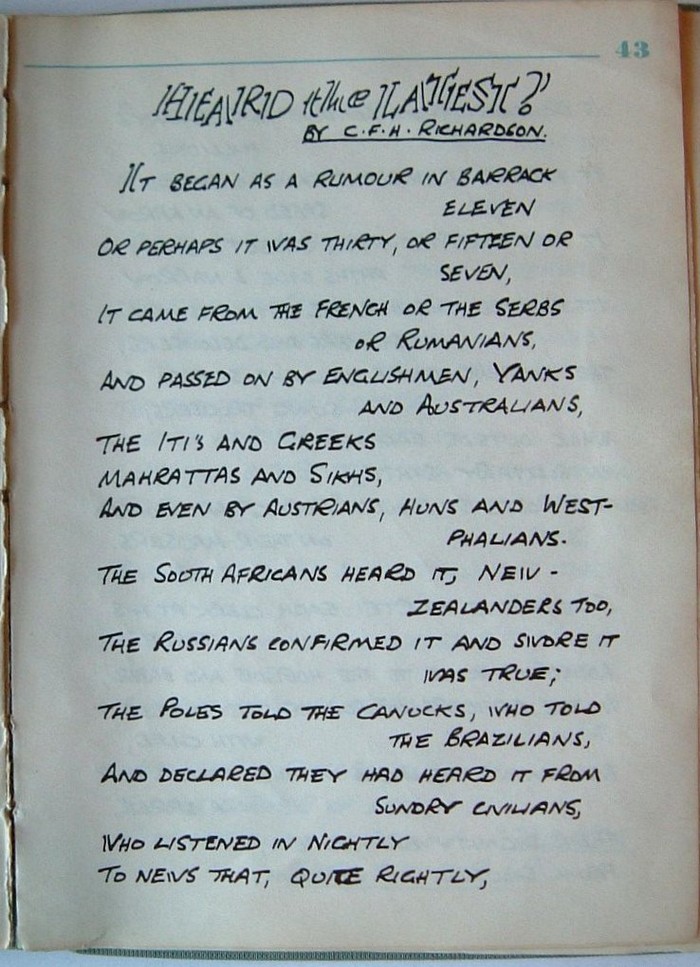 43
HEARD the LATEST?
BY C.F.H. RICHARDSON.
IT BEGAN AS A RUMOUR IN BARRACK
ELEVEN
OR PERHAPS IT WAS THIRTY, OR FIFTEEN OR
SEVEN,
IT CAME FROM THE FRENCH OR THE SERBS
OR RUMANIANS,
AND PASSED ON BY ENGLISHMEN, YANKS
AND AUSTRALIANS,
THE ITI'S AND GREEKS
MAHRATTAS AND SIKHS,
AND EVEN BY AUSTRIANS, HUNS AND WEST-
PHALIANS.
THE SOUTH AFRICANS HEARD IT, NEW-
ZEALANDERS TOO,
THE RUSSIANS CONFIRMED IT AND SWORE IT
WAS TRUE;
THE POLES TOLD THE CANUCKS, WHO TOLD
THE BRAZILIANS,
AND DECLARED THEY HAD HEARD IT FROM
SUNDRY CIVILIANS,
WHO LISTENED IN NIGHTLY
TO NEWS THAT, QUITE RIGHTLY,